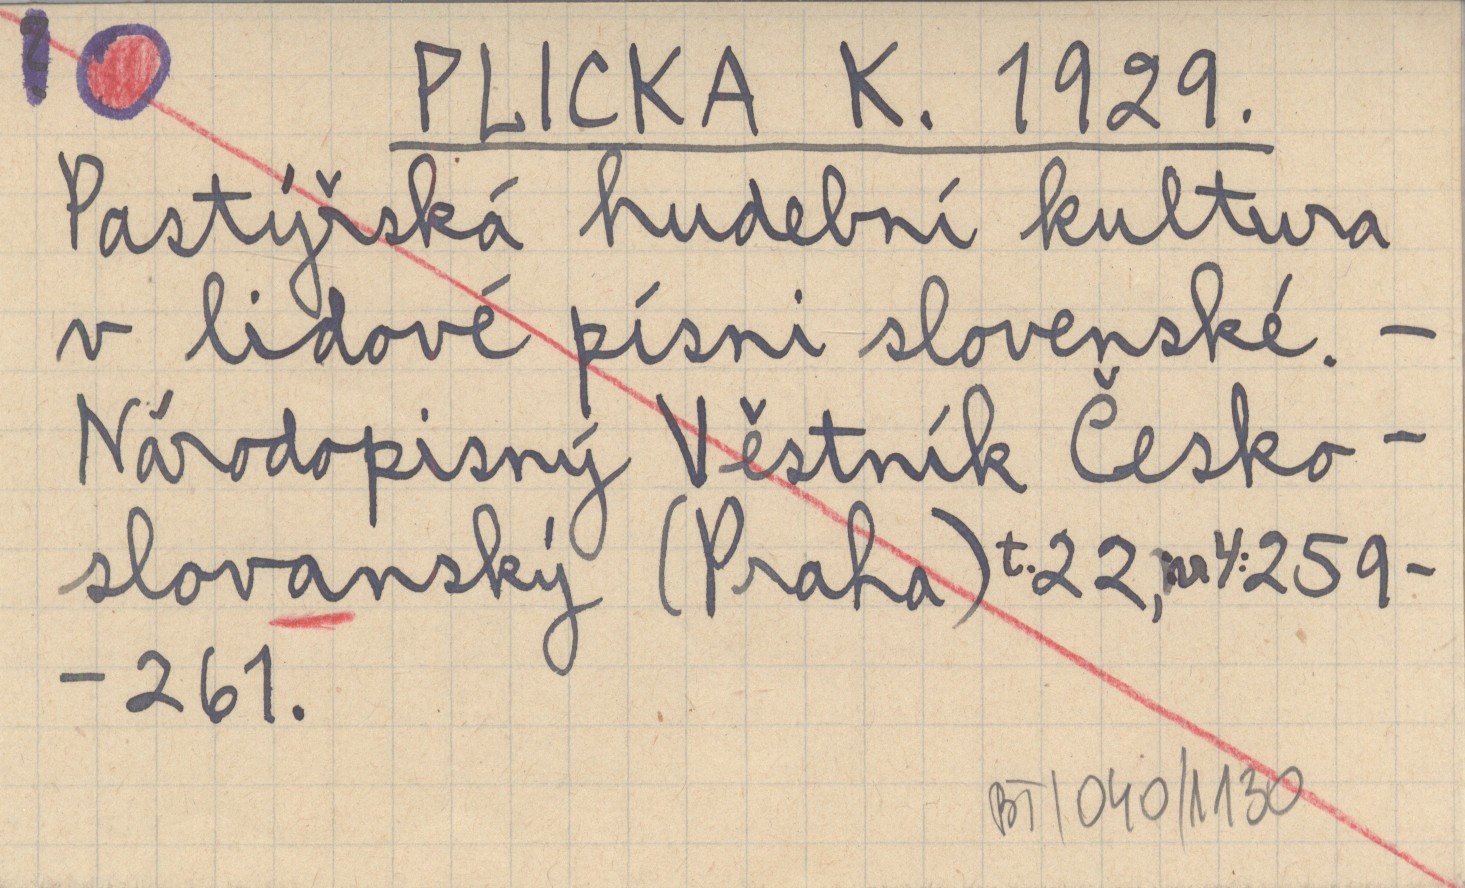 10
PLICKA K. 1929.
Pastýřská hudební kultura
v lidové písni slovenské. –
Národopisný Věstník Česko-
slovanský (Praha) t. 22, nr 4: 259-
- 261.
BT/040/1130